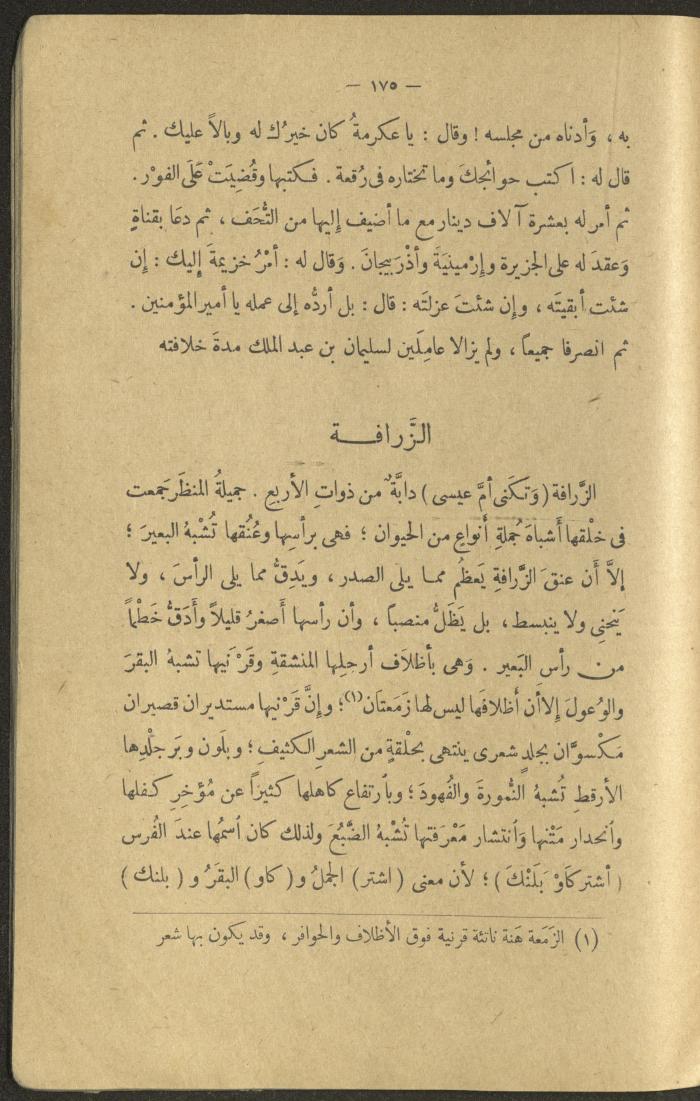 — ١٧٥ —
به ، وَأدناه من مجلسه ! وقال : يا عكرمةُ كان خيرُك له وبالاً عليك . ثم
قال له : اكتب حوائجكَ وما تختاره فى رُقعة . فكتبها وقُضِيَتْ عَلَى الفوْر .
ثم أمر له بعشرة آلاف دينار مع ما أضيف إليها من التُّحَف ، ثم دعَا بقناةٍ
وَعقدَ له على الجزيرة وإرْمينيَةَ وأذْرَبيجانَ . وَقال له : أمْرُ خزيمةَ إليك : إن
شئت أبقيتَه ، وإن شئتَ عزلتَه : قال : بل أردُّه إلى عمله يا أمير المؤمنين .
ثم انصرفا جميعاً ، ولم يزالا عامِلَين لسليمان بن عبد الملك مدةَ خلافته
الزَّرافـــة
الزَّرافة ( وَتكَنى أمَّ عيسى ) دابَّةٌ من ذواتِ الأربعِ . جميلةُ المنظَر جَمعت
فى خلْقها أشباهَ جُملةِ أنواعٍ من الحيوان ؛ فهى برأسِها وعُنُقها تُشْبهُ البعيرَ ؛
إلاَّ أن عنقَ الزَّرافةِ يَعظُم ممـا يلى الصدر ، ويَدِقُّ مما يلى الرأسَ ، ولا
يَنحنِى ولا ينبسط ، بل يَظَلُّ منصباً ، وأن رأسها أصغرُ قليلاً وأدَقُّ خَطْماً
من رأس البَعير . وَهى بأظلاَف أرجلِها المنشقةِ وقَرْنَيها تشبهُ البقرَ
والوُعولَ إلا أن أظلافَها ليس لها زَمَعتان(١) ؛ وإنَّ قرْنيها مستديران قصيران
مَكْسوَّان بجلدٍ شعرى ينتهى بحَلْقةٍ من الشعر الكثيفِ ؛ وبلَون وبَر جلْدِها
الأرقطِ تُشبهُ النُّمورةَ والفُهودَ ؛ وبارتفاع كاهلها كثيرًا عن مُؤخرِ كفلها
وانحدار مَتْنها وَانتشار مَعْرَفتها تُشْبهُ الضَّبُعَ ولذلك كان اسمُها عندَ الفُرس
( أشتركَاوْ بَلَنْكَ ) ؛ لأن معنى ( اشتر ) الجملُ و ( كاو ) البقَرُ و ( بلنك )
(١) الزَمَعة هَنة ناتئة قرنية فوق الأظلاف والحوافر ، وقد يكون بها شعر